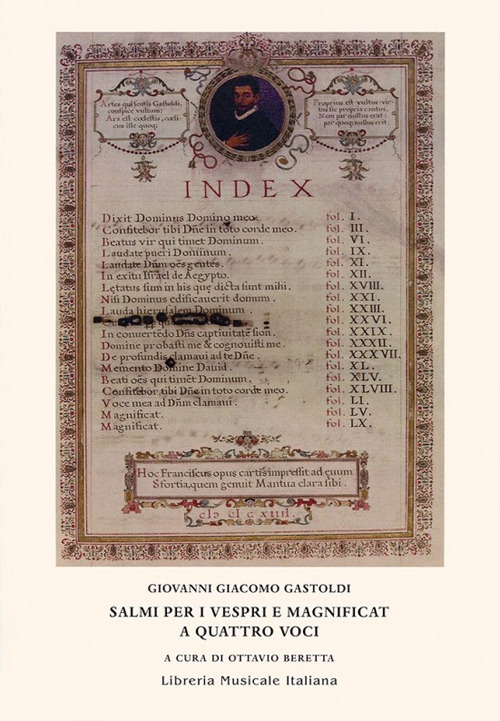 Artes qui sentis Gastoldi,
conspice vultum:
Ars est cœlestis, cœli-
cus ille quoq;
Proprius est vultus: vir-
tutis propria cantus.
Nam par nullus erat:
par quoq; nullus erit.
INDEX
Dixit Dominus Domino meo. fol. I.
Confitebor tibi Dñe in toto corde meo. fol. III.
Beatus vir qui timet Dominum. fol. VI.
Laudate pueri Dominum. fol. IX.
Laudate Dñm oẽs gentes. fol. XI.
In exitu Israel de Aegypto. fol. XII.
Lętatus sum in his quę dicta sunt mihi. fol. XVIII.
Nisi Dominus edificauerit domum. fol. XXI.
Lauda hierusalem Dominum. fol. XXIII.
fol. XXVI.
In conuertẽdo Dñs captiuitatẽ sion. fol. XXIX.
Domine probasti me & cognouisti me. fol. XXXII.
De profundis clamaui ad te Dñe. fol. XXXVII.
Memento Domine Dauid. fol. XL.
Beati oẽs qui timẽt Dominum. fol. XLV.
Confitebor tibi Dñe in toto corde meo. fol. XLVIII.
Voce mea ad Dñm clamaui. fol. LI.
Magnificat. fol. LV.
Magnificat. fol. LX.
Hoc Franciscus opus cartis impressit ad ęuum
Sfortia, quem genuit Mantua clara sibi.
GIOVANNI GIACOMO GASTOLDI
SALMI PER I VESPRI E MAGNIFICAT
A QUATTRO VOCI
A CURA DI OTTAVIO BERETTA
Libreria Musicale Italiana